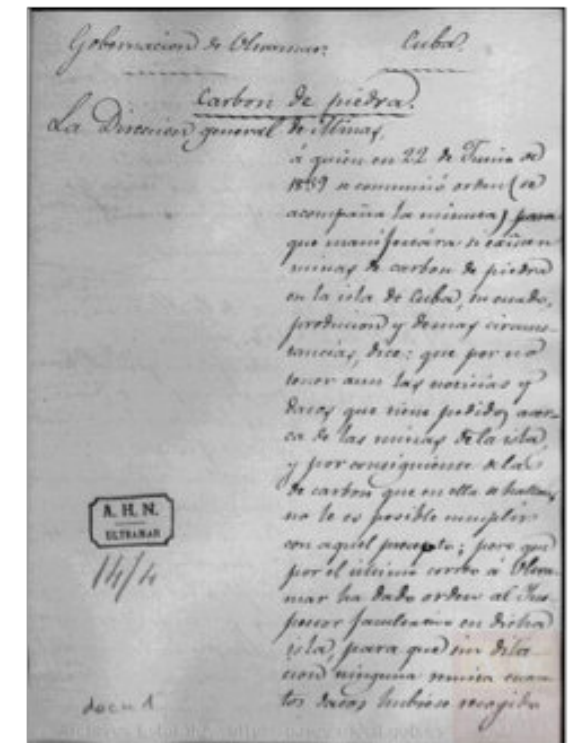 Gobernacion de Ultramar. Cuba.
Carbon de piedra.
La Direccion general de Minas,
á quien en 22 de Junio de
1839 se comunicó orden (se
acompaña la minuta) para
que manifestára si existen
minas de carbon de piedra
en la isla de Cuba, su estado,
producion y demas circuns-
tancias, dice: que por no
tener aun las noticias y
datos que tiene pedidos acer-
ca de las minas de la isla,
y por consiguiente de las
de carbon que en ella se hallan,
no le es posible cumplir
con aquel precepto; pero que
por el ultimo correo á Ultra-
mar ha dado orden al Ins-
pector facultativo en dicha
isla, para que sin dila-
cion ninguna remita cuan-
tos datos hubiese recogido
A. H. N.
ULTRAMAR
14/4
docu 1